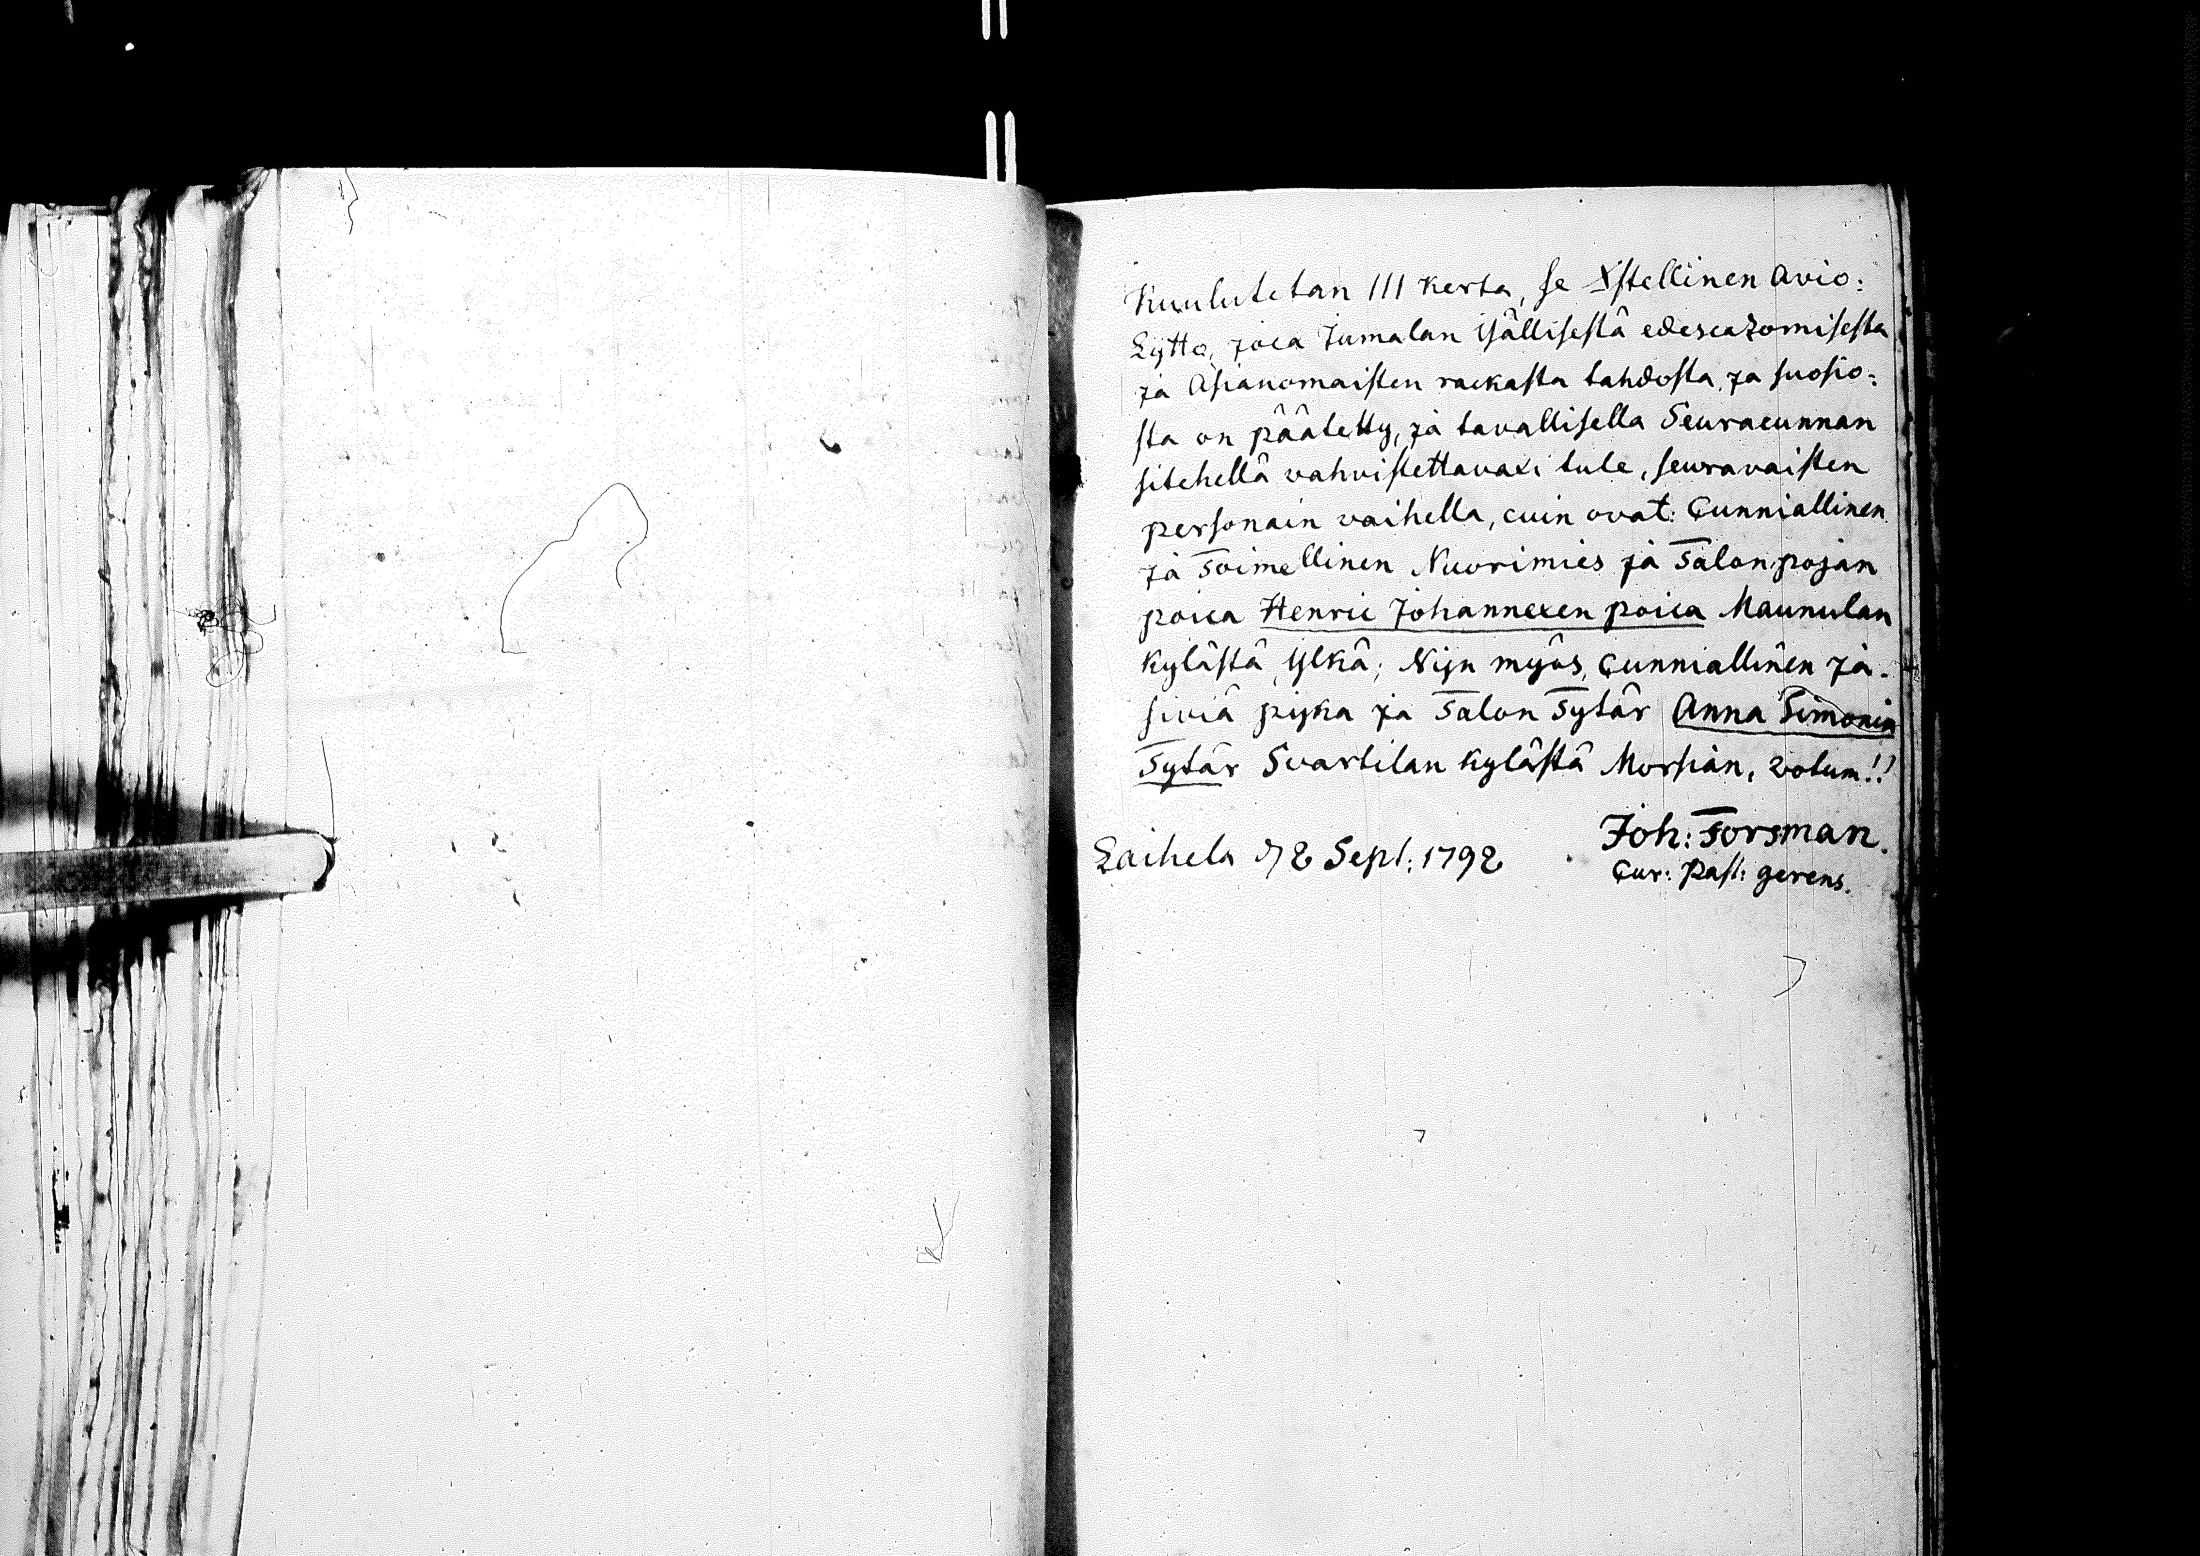 Kuulutetan III kerta, se Xstellinen Avio:
Lytto, joca Jumalan Isällisestä edescazomisesta
ja Asianomaisten rackasta tahdosta, ja suosio:
sta on päätetty, ja tavallisella Seuracunnan
sitehellä vahvistettavaxi tule, seuravaisten
personain vaihella, cuin ovat: Cunniallinen
ja Toimellinen Nuorimies ja Talonpojan
poica Henric Johannexen poica Maunulan
kylästä Ylkä; Nijn myös, Cunniallinen ja
siviä pijka ja Talon Tytär Anna Simonin
Tytär Svartilan kylästä Morsian, votum!!
Laihela d 2 Sept: 1792
Joh: Forsman.
Cur: Past: gerens.